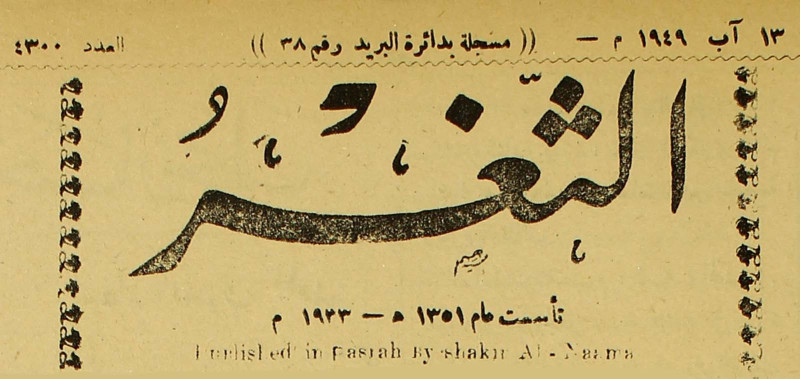 ١٣ آب ١٩٤٩ م — (( مسجلة بدائرة البريد رقم ٣٨ )) العدد ٤٣٠٠
الثَّغْرُ
تأسست عام ١٣٥١ ه — ١٩٣٣ م
Published in Basrah By shakir Al - Naama